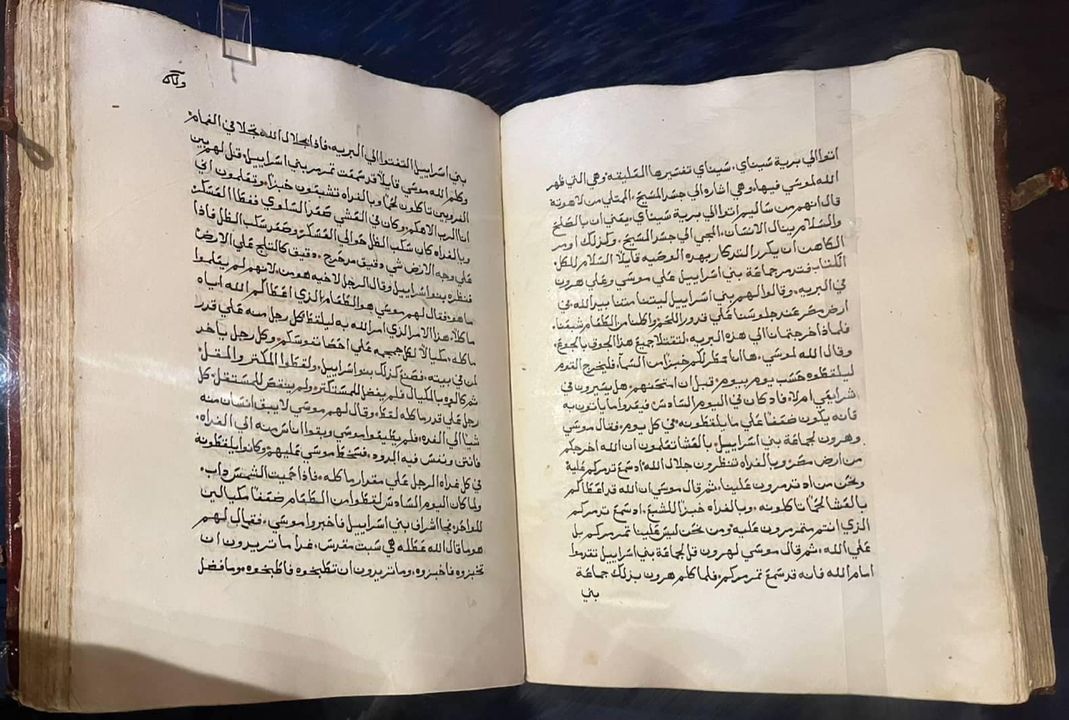 اتوا الي برية سيناي. سيناي تفسيرها العليقه وهي التي ظهر
الله لموسي فيها. وهي اشاره الي جسد المسيح. الممتلي من لاهوته
قال انهم من ساليم اتوا الي برية سيناي. يعني ان بالصلح
والسلام بينا الانسان. المجي الي جسد المسيح. وكذلك اومر
الكاهن ان يكرر التدكار بهده الوصيه قايلا السلام للكل
الكتاب فتدمر جماعة بني اسراييل علي موسي وعلي هرون
في البريه. وقالوا لهم بني اسراييل ليتنا متنا بيد الله في
ارض مصر عند جلوسنا علي قدور اللحم واكلنا من الطعام شبعنا.
فلماذا اخرجتمانا الي هذه البريه. لتقتلا جميع هذا الجوق بالجوع.
وقال الله لموسي. ها انا ممطر لكم خبزا من السما. فليخرج القوم
ليلتقطوه حسب يوم بيوم. قبل ان امتحنهم. هل يسيرون في
شرايعي ام لا. فاد كان في اليوم السادس فيعدوا ما ياتون به
فانه يكون ضعفا علي ما يلتقطونه في كل يوم. فقال موسي
وهرون لجماعة بني اسراييل. بالعشا تعلمون ان الله اخرجكم
من ارض مصر وبالغداه تنظرون جلال الله اد سمع تدمركم عليه
ونحن من اد تدمرون علينا. ثم قال موسي ان الله قد اعطاكم
بالعشا لحما تاكلونه. وبالغداه خبزا للشبع. اد سمع تدمركم
الذي انتم متدمرون عليه ومن نحن ليس علينا تدمركم بل
علي الله. ثم قال موسي لهرون قل لجماعة بني اسراييل تقدموا
امام الله فانه قد سمع تدمركم. فلما كلم هرون بذلك جماعة
بني
بني اسراييل التفتوا الي البريه. فاذا بجلال الله تجلا في الغمام
وكلم الله موسي قايلا قد سمعت تدمر بني اسراييل. قل لهم بين
الغروبين تاكلون لحما وبالغداه تشبعون خبزا. وتعلمون اني
انا الرب الاهكم. وكان في العشي صعد السلوي فغطا العسكر
وبالغداه كان سكب الطل حوالي العسكر وصعد سكب الطل فاذا
علي وجه الارض شي دقيق مدحرج. دقيق كالتلج علي الارض
فنظره بنو اسراييل وقال الرجل لاخيه هو من. لانهم لم يعلموا
ما هو. فقال لهم موسي هو الطعام الذي اعطاكم الله اياه
ماكلا. هذا الامر الذي امر الله به ليلتقط كل رجل منه علي قدر
ماكله. مكيالا لكل جمجمه علي احصا نفوسكم. وكل رجل ياخد
لمن في بيته. فصنع كذلك بنو اسراييل. ولقطوا المكتر والمقل.
تم كالوه بالمكيال فلم يفضل للمستكتر. ولم ينقص للمستقل. كل
رجل علي قدر ماكله لقط. وقال لهم موسي لا يبق انسان منه
شيا الي الغد. فلم يطيعوا موسي وبقوا اناس منه الي الغداه.
فانتن ونغش فيه الدود. فسخط موسي عليهم. وكانوا يلقطونه
في كل غداه الرجل علي مقدار ماكله. فاذا حميت الشمس داب.
ولما كان اليوم السادس لقطوا من الطعام ضعفا مكيالين
للواحد. فجا اشراف بني اسراييل فاخبروا موسي. فقال لهم
هو ما قال الله عطله في سبت مقدس. غدا ما تريدون ان
تخبزوه فاخبزوه. وما تريدون ان تطبخوه فاطبخوه. وما فضل